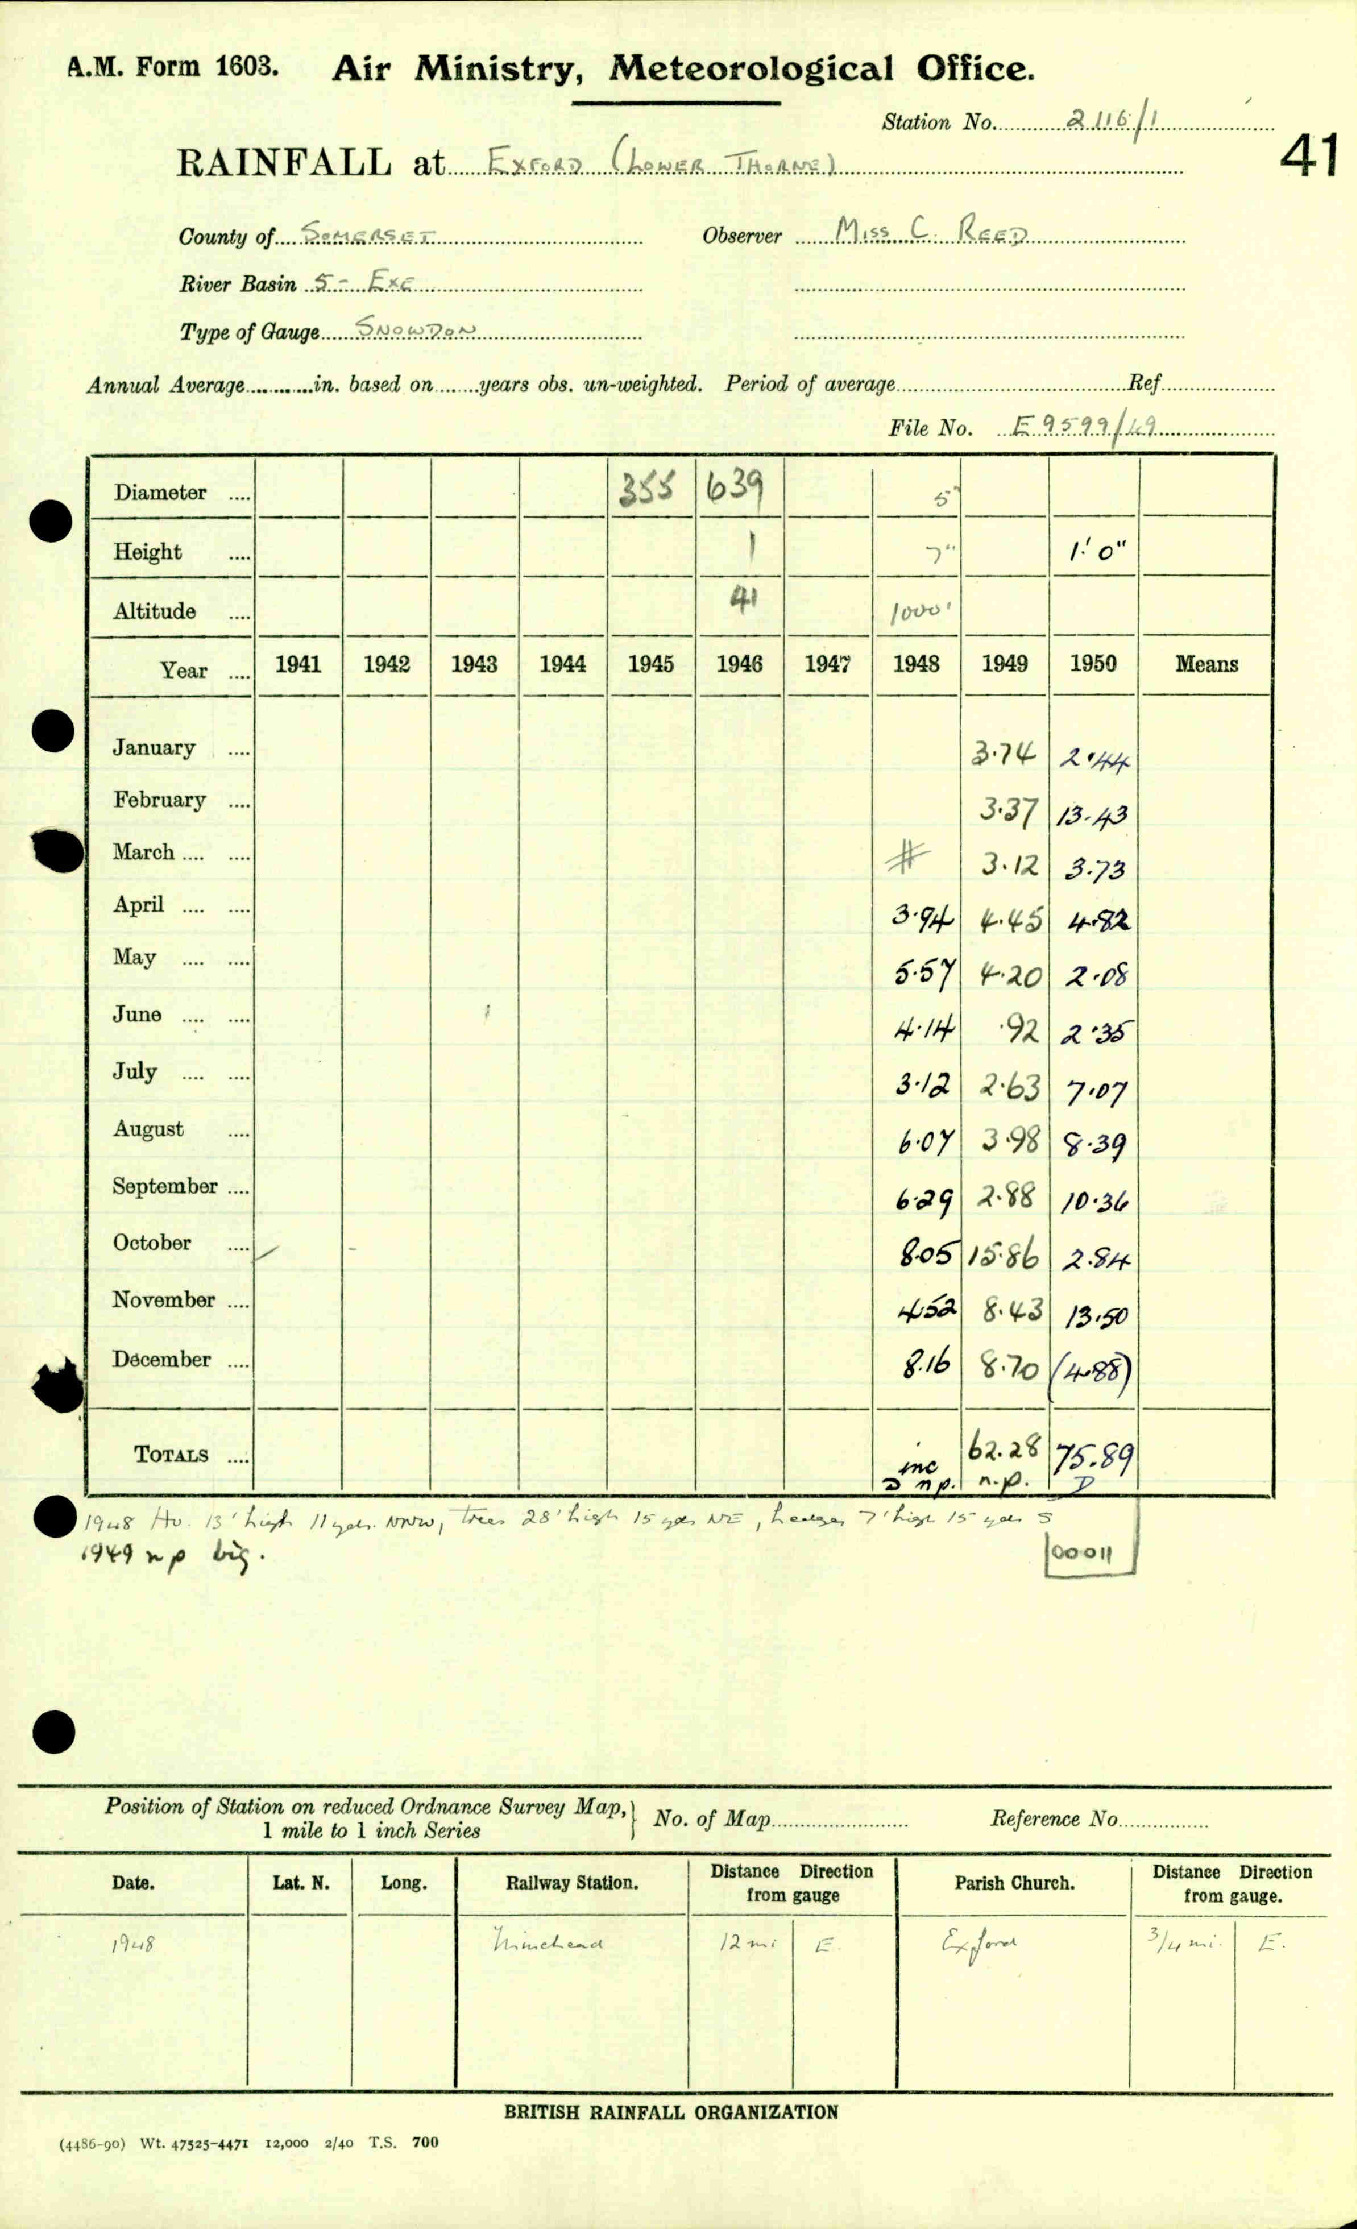 A.M. Form 1603. Air Ministry, Meteorological Office.
Station No. 2116/1
41
RAINFALL at Exford (Lower Thorne)
County of Somerset Observer Miss C. Reed
River Basin 5 - Exe
Type of Gauge Snowdon
Annual Average in. based on years obs. un-weighted. Period of average Ref.
File No. E9599/49
Diameter .... 355 639 5"
Height .... 1 7" 1' 0"
Altitude .... 41 1000'
Year .... 1941 1942 1943 1944 1945 1946 1947 1948 1949 1950 Means
January .... 3.74 2.44
February .... 3.37 13.43
March .... .... # 3.12 3.73
April .... .... 3.94 4.45 4.82
May .... .... 5.57 4.20 2.08
June .... .... 4.14 .92 2.35
July .... .... 3.12 2.63 7.07
August .... 6.07 3.98 8.39
September .... 6.29 2.88 10.36
October .... 8.05 15.86 2.84
November .... 4.52 8.43 13.50
December .... 8.16 8.70 (4.88)
TOTALS .... inc 62.28 75.89
D n.p. n.p. D
1948 Ho. 13' high 11 yds. NNW, trees 28' high 15 yds NE, hedges 7' high 15 yds S
1949 n p big.
00011
Position of Station on reduced Ordnance Survey Map, } No. of Map Reference No.
1 mile to 1 inch Series
Date. Lat. N. Long. Railway Station. Distance Direction from gauge Parish Church. Distance Direction from gauge.
1948 Minehead 12 mi E. Exford 3/4 mi. E.
BRITISH RAINFALL ORGANIZATION
(4486-90) Wt. 47525-4471 12,000 2/40 T.S. 700